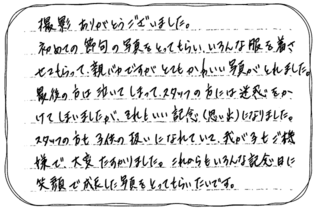 撮影ありがとうございました。
初めての節句の写真をとってもらい、いろんな服を着さ
せてもらって、親バカですがとてもかわいい写真がとれました。
最後の方は泣いてしまって、スタッフの方には迷惑をか
けてしまいましたが、それもいい記念(思い出)になりました。
スタッフの方も子供の扱いになれていて、我が子もご機
嫌で大変たすかりました。これからもいろんな記念日に
笑顔で成長した写真をとってもらいたいです。